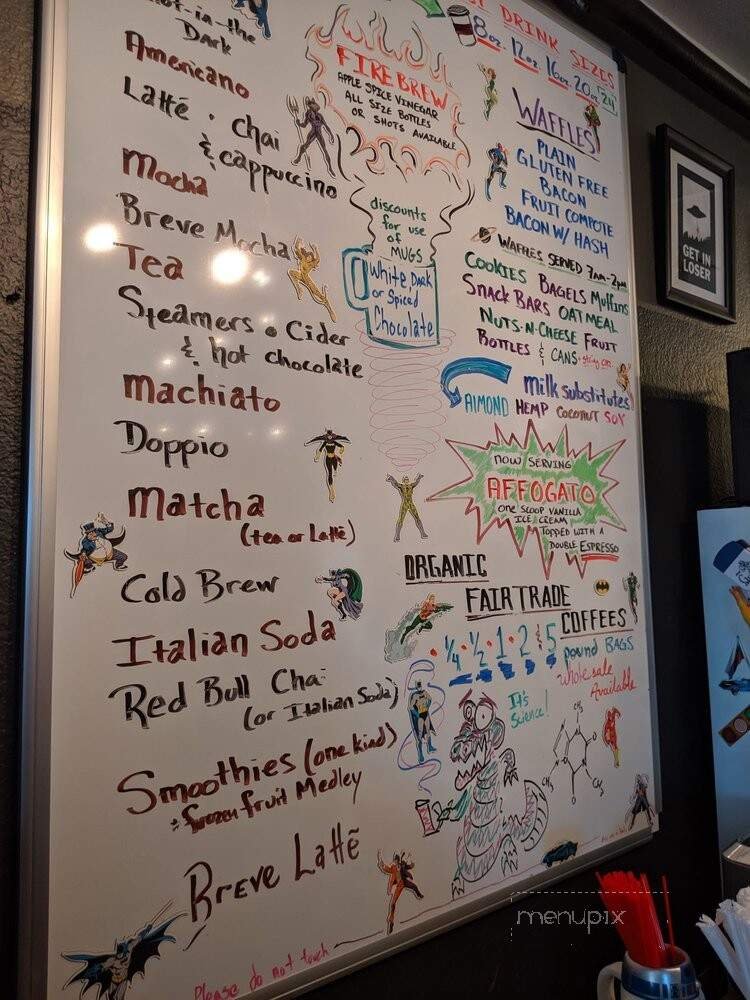 -in-the
Dark
Americano
Latté • Chai
& cappuccino
Mocha
Breve Mocha
Tea
Steamers • Cider
& hot chocolate
machiato
Doppio
Matcha
(tea or Latté)
Cold Brew
Italian Soda
Red Bull Chai
(or Italian Soda)
Smoothies (one kind)
frozen fruit Medley
Breve Latté
Please do not touch
FIRE BREW
APPLE SPICE VINEGAR
ALL SIZE BOTTLES
OR SHOTS AVAILABLE
discounts
for use
of
MUGS
White, Dark
or Spiced
Chocolate
DRINK SIZES
8oz. 12oz. 16oz. 20oz. 24
WAFFLES
PLAIN
GLUTEN FREE
BACON
FRUIT COMPOTE
BACON W/ HASH
WAFFLES SERVED 7am-2pm
COOKIES BAGELS Muffins
Snack BARS OATMEAL
NUTS-N-CHEESE FRUIT
BOTTLES & CANS
milk substitutes
AlMOND HEMP COCONUT SOY
NOW SERVING
AFFOGATO
ONE SCOOP VANILLA
ICE CREAM
TOPPED WITH A
DOUBLE ESPRESSO
ORGANIC
FAIR TRADE
COFFEES
• 1/4 • 1/2 • 1 • 2 & 5
pound BAGS
Wholesale
Available
It's
Science!
CH3
N
N
O
N
N
CH3
CH3
O
GET IN
LOSER
menupix